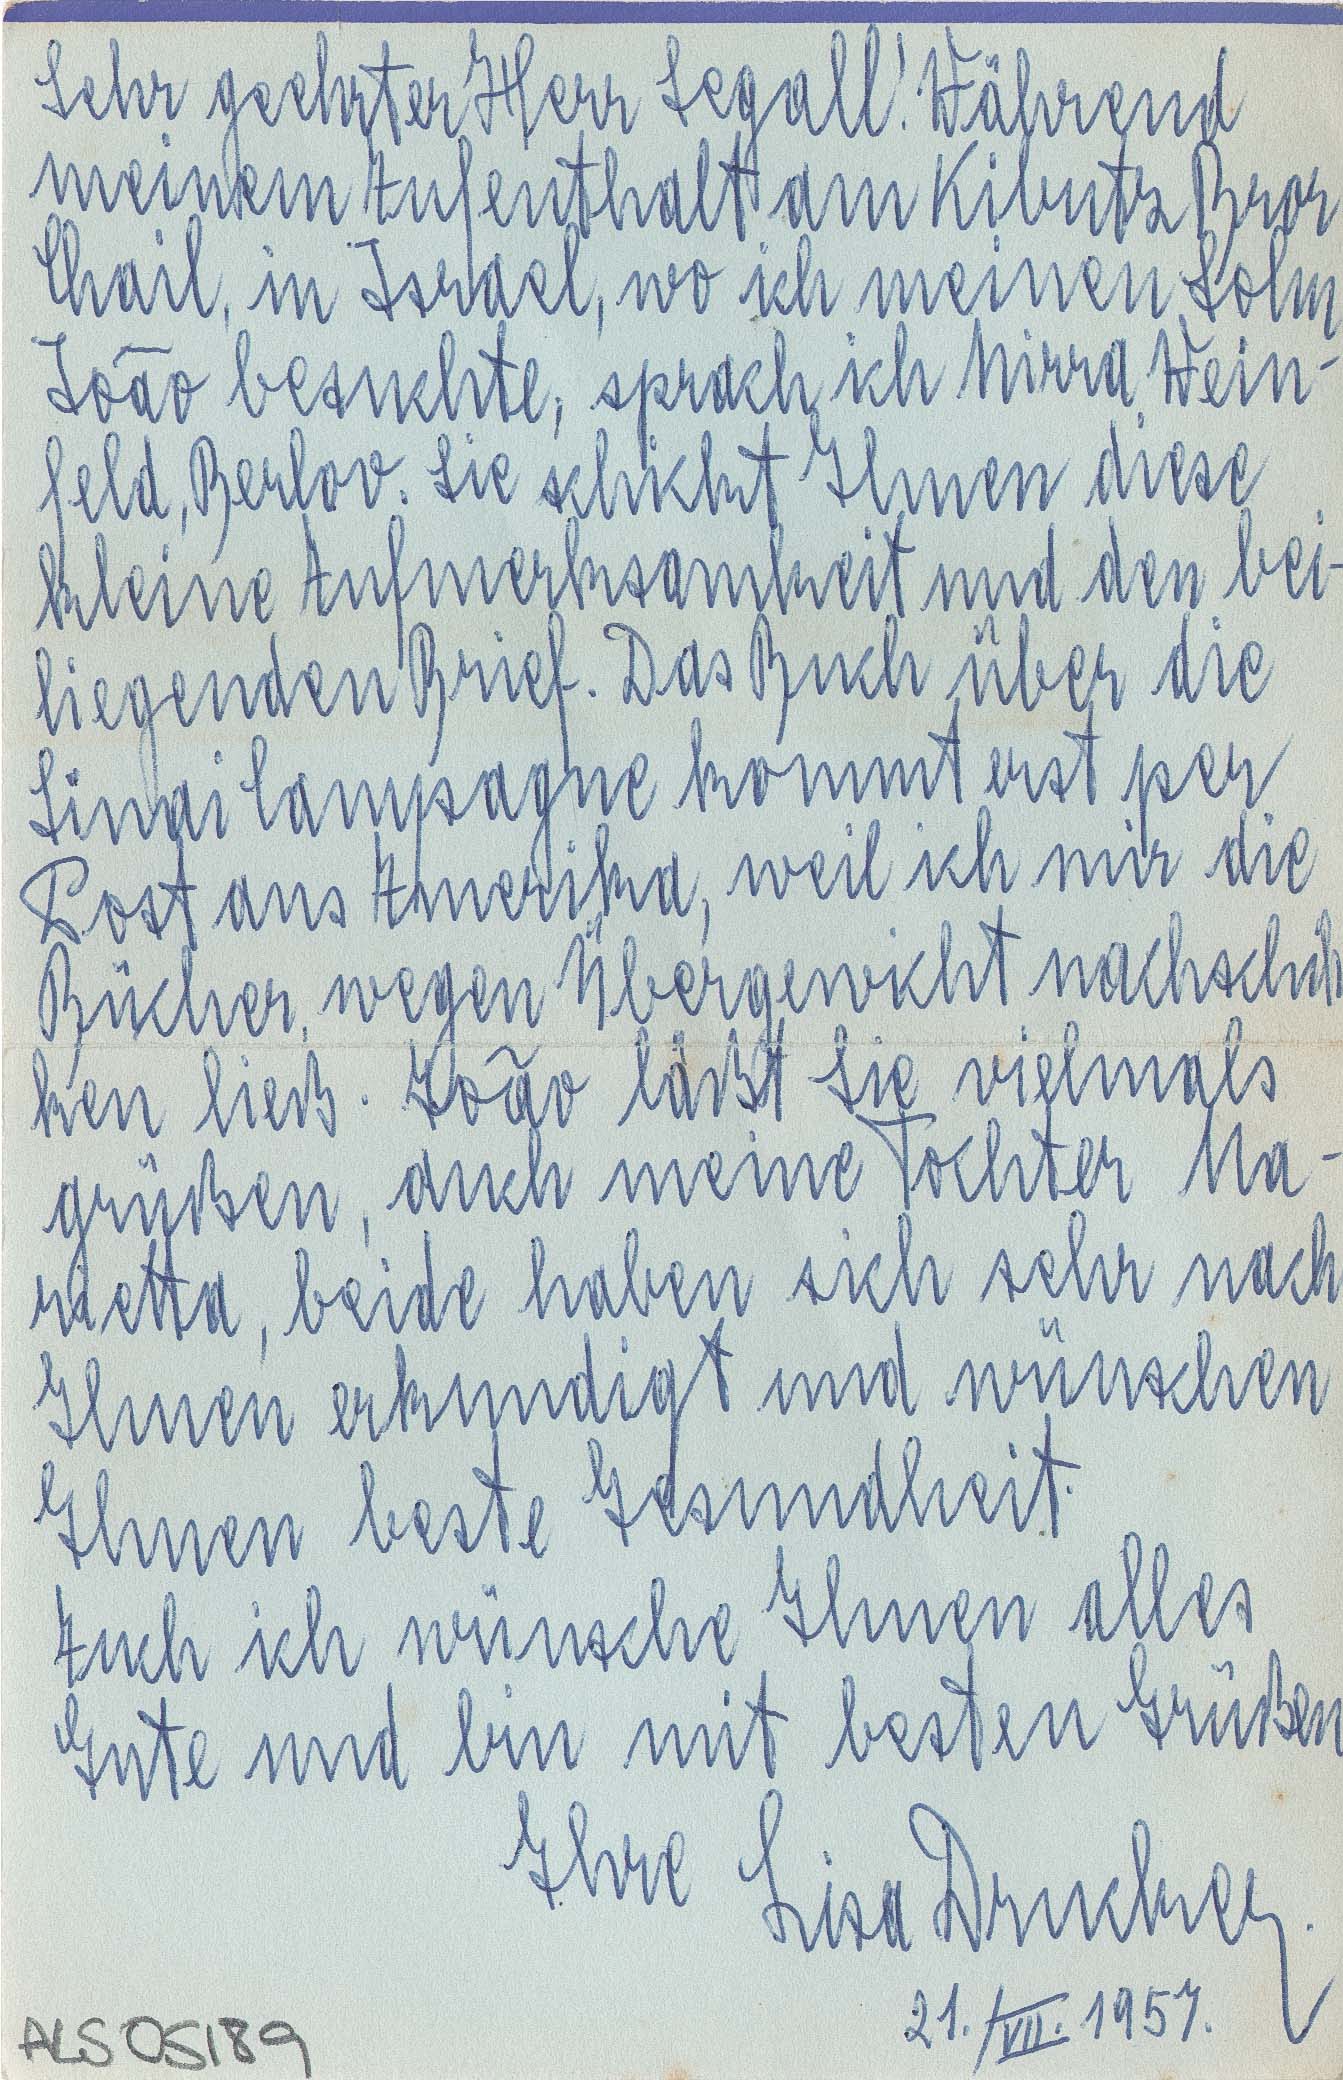 Sehr geehrter Herr Segall! Während
meinem Aufenthalt am Kibutz Bror
Chail, in Israel, wo ich meinen Sohn
João besuchte, sprach ich Mirra Wein-
feld, Berlov. Sie schickt Ihnen diese
kleine Aufmerksamkeit und den bei-
liegenden Brief. Das Buch über die
Sinai Campagne kommt erst per
Post aus Amerika, weil ich mir die
Bücher, wegen Übergewicht nachschik
ken ließ. João läßt Sie vielmals
grüßen, auch meine Tochter Ma-
rietta, beide haben sich sehr nach
Ihnen erkundigt und wünschen
Ihnen beste Gesundheit.
Auch ich wünsche Ihnen alles
Gute und bin mit besten Grüßen
Ihre Lisa Drucker.
21./VII. 1957.
ALS 05189